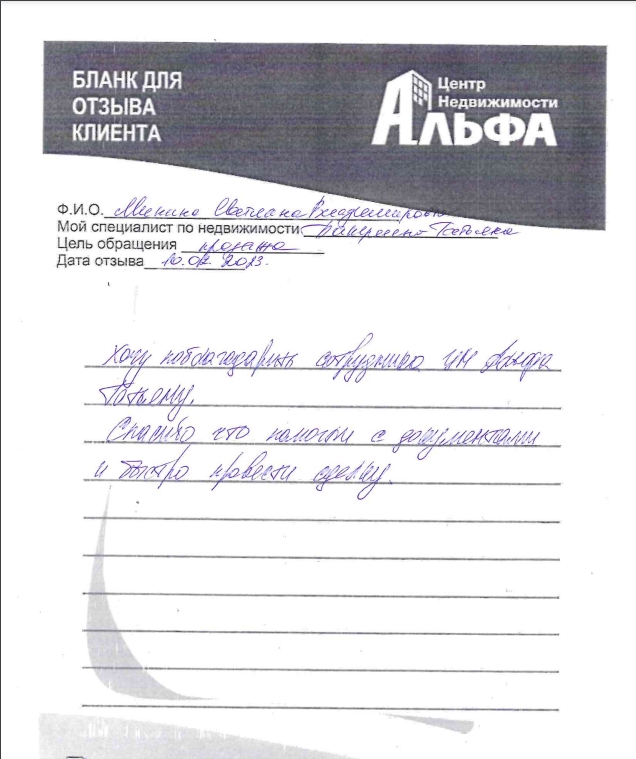 БЛАНК ДЛЯ
ОТЗЫВА
КЛИЕНТА
Центр
Недвижимости
АЛЬФА
Ф.И.О. Минина Светлана Владимировна
Мой специалист по недвижимости Татьяна
Цель обращения продажа
Дата отзыва 10.02.2023.
Хочу поблагодарить сотрудника ЦН Альфа
Татьяну.
Спасибо что помогли с документами
и быстро провести сделку.